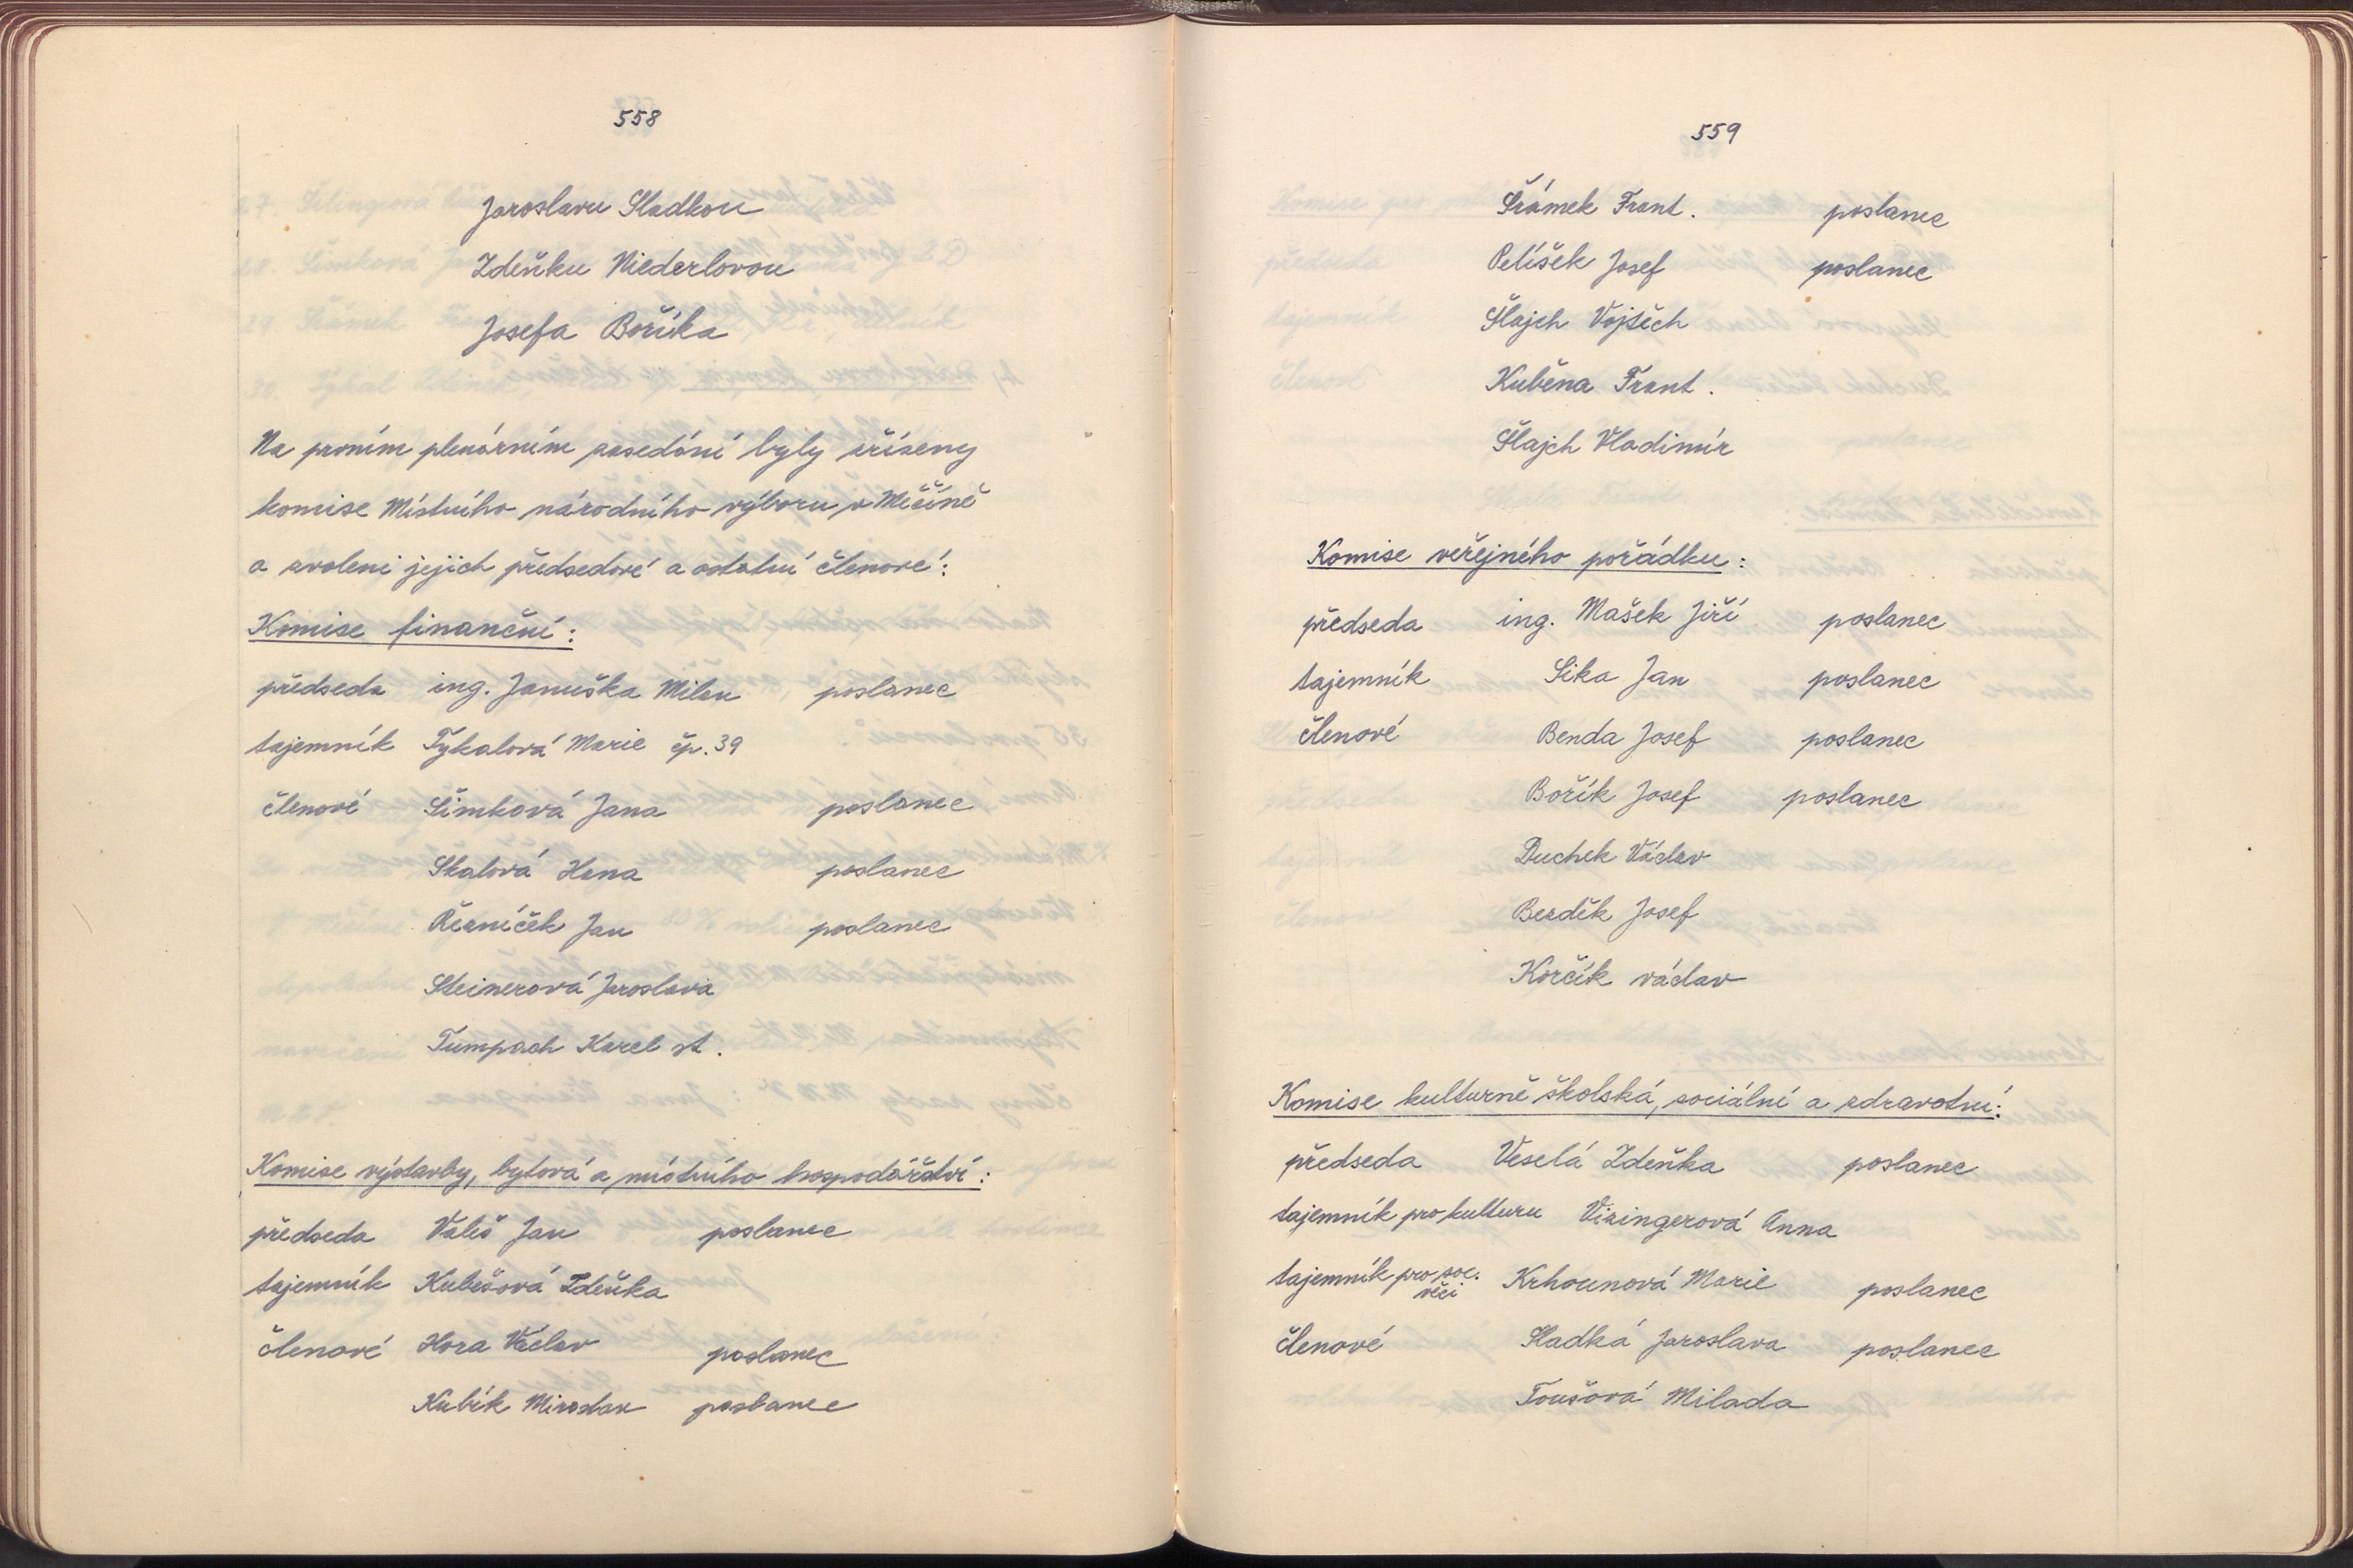 558
Jaroslavu Sladkou
Zdeňku Niederlovou
Josefa Boříka
Na prvním plenárním zasedání byly zřízeny
komise Místního národního výboru v Měčíně
a zvoleni jejich předsedové a ostatní členové:
Komise finanční:
předseda ing. Januška Milan poslanec
tajemník Tykalová Marie čp. 39
členové Šimková Jana poslanec
Skalová Hana poslanec
Řezníček Jan poslanec
Steinerová Jaroslava
Tumpach Karel st.
Komise výstavby, bytová a místního hospodářství:
předseda Valeš Jan poslanec
tajemník Kubešová Zdeňka
členové Hora Václav poslanec
Kubík Miroslav poslanec
559
Šrámek Frant. poslanec
Pelíšek Josef poslanec
Šlajch Vojtěch
Kuběna Frant.
Šlajch Vladimír
Komise veřejného pořádku:
předseda ing. Mašek Jiří poslanec
tajemník Sika Jan poslanec
členové Benda Josef poslanec
Bořík Josef poslanec
Duchek Václav
Bezděk Josef
Korčík václav
Komise kulturně školská, sociální a zdravotní:
předseda Veselá Zdeňka poslanec
tajemník pro kulturu Vizingerová Anna
tajemník pro soc. věci Krhounová Marie poslanec
členové Sladká Jaroslava poslanec
Toušová Milada